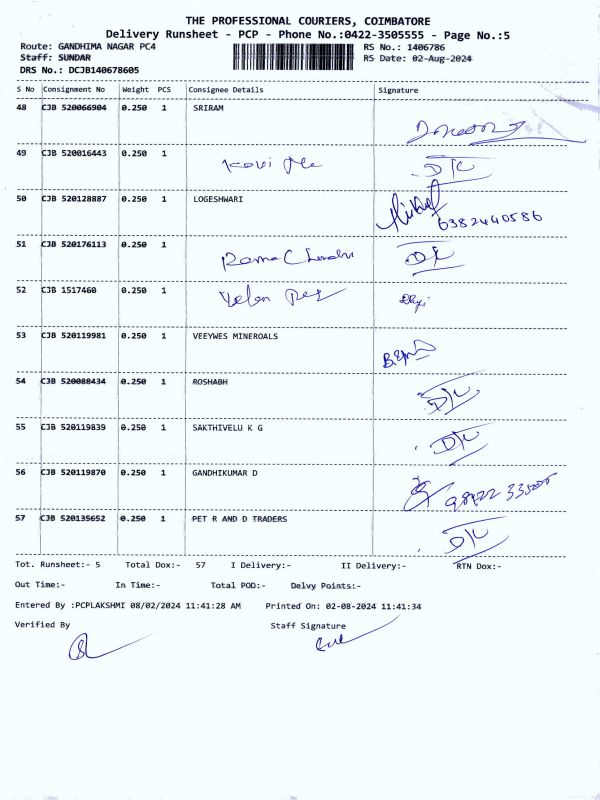 THE PROFESSIONAL COURIERS, COIMBATORE
Delivery Runsheet - PCP - Phone No.:0422-3505555 - Page No.:5
Route: GANDHIMA NAGAR PC4 RS No.: 1406786
Staff: SUNDAR RS Date: 02-Aug-2024
DRS No.: DCJB140678605
S No Consignment No Weight PCS Consignee Details Signature
48 CJB 520066904 0.250 1 SRIRAM
49 CJB 520016443 0.250 1
50 CJB 520128887 0.250 1 LOGESHWARI
6382440586
51 CJB 520176113 0.250 1
52 CJB 1517460 0.250 1
53 CJB 520119981 0.250 1 VEEYWES MINEROALS
54 CJB 520088434 0.250 1 ROSHABH
55 CJB 520119839 0.250 1 SAKTHIVELU K G
56 CJB 520119870 0.250 1 GANDHIKUMAR D
57 CJB 520135652 0.250 1 PET R AND D TRADERS
Tot. Runsheet:- 5 Total Dox:- 57 I Delivery:- II Delivery:- RTN Dox:-
Out Time:- In Time:- Total POD:- Delvy Points:-
Entered By :PCPLAKSHMI 08/02/2024 11:41:28 AM Printed On: 02-08-2024 11:41:34
Verified By Staff Signature